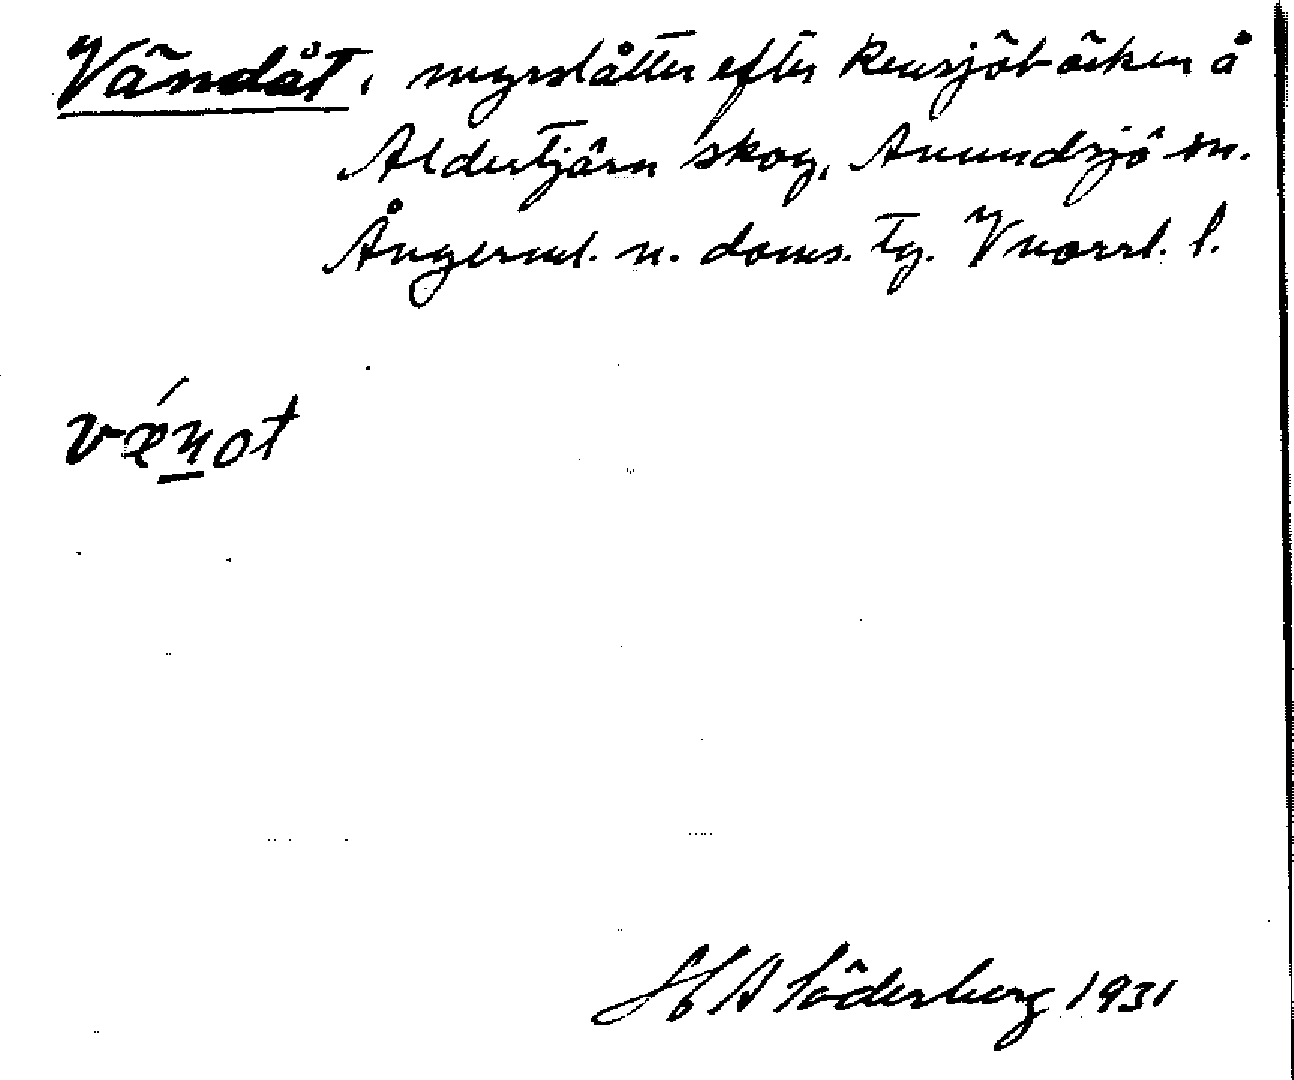 Vändåt, myrslåtter efter Rensjöbäcken å
Aldertjärn skog, Anundsjö sn.
Ångerml. n. doms. tg. Vnorrl. l.
vǽn̲ot
H A Söderberg 1931